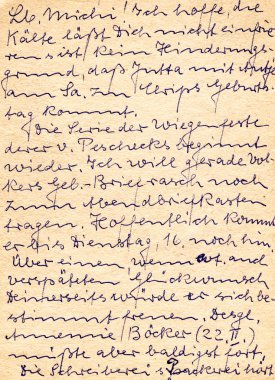 Lb. Michi! Ich hoffe, die
Kälte läßt Dich nicht einfrie
ren s ist kein Hinderungs
grund, daß Jutta mit
am Sa. zum Geburts-
tag kommt.
Die Serie der Wiegenfeste
derer v. Peschecks beginnt
wieder. Ich will gerade Vol
kers Geb.-Brief rasch noch
zum Abendbriefkasten
tragen. Hoffentlich kommt
er bis Dienstag, 16. noch hin.
Über einen, wenn a.
verspäteten Glückwunsch
Deinerseits würde er sich be
stimmt freuen. Desgl.
Annemie Böcker (22. II.)
müßte aber baldigst fort.
Die Schreiberei hört